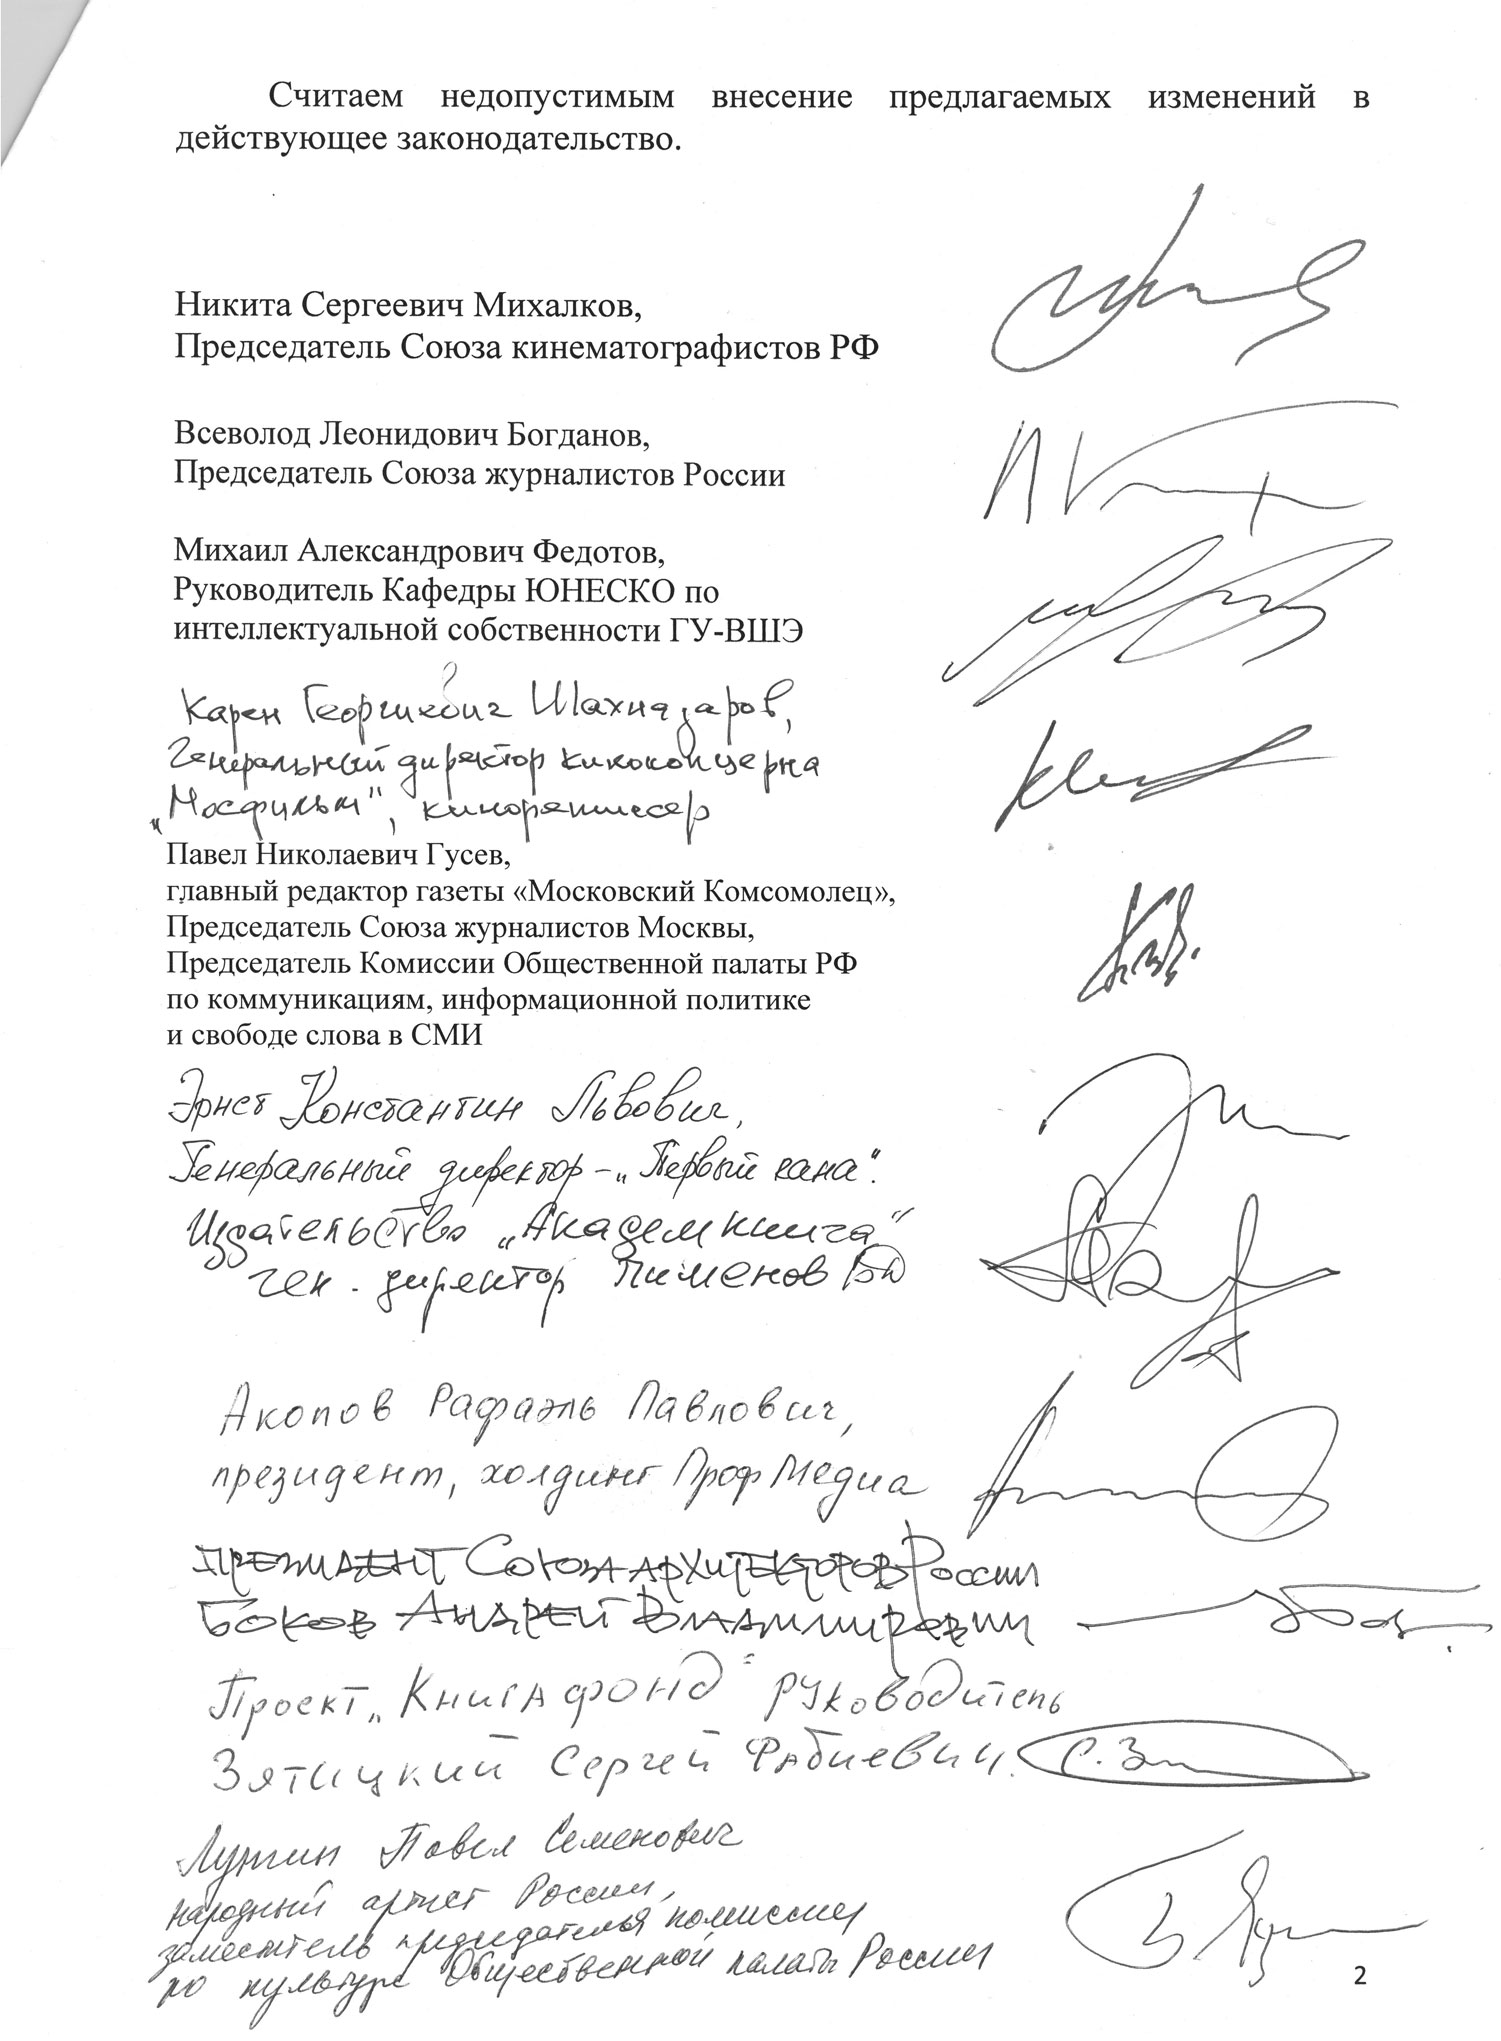 Считаем недопустимым внесение предлагаемых изменений в
действующее законодательство.
Никита Сергеевич Михалков,
Председатель Союза кинематографистов РФ
Всеволод Леонидович Богданов,
Председатель Союза журналистов России
Михаил Александрович Федотов,
Руководитель Кафедры ЮНЕСКО по
интеллектуальной собственности ГУ-ВШЭ
Карен Георгиевич Шахназаров,
Генеральный директор киноконцерна
„Мосфильм", кинорежиссер
Павел Николаевич Гусев,
главный редактор газеты «Московский Комсомолец»,
Председатель Союза журналистов Москвы,
Председатель Комиссии Общественной палаты РФ
по коммуникациям, информационной политике
и свободе слова в СМИ
Эрнст Константин Львович,
Генеральный директор – „Первый кана".
Издательство „Академкнига"
ген. директор Пименов
Акопов Рафаэль Павлович,
президент, холдинг ПрофМедиа
ПРЕЗИДЕНТ СОЮЗА АРХИТЕКТОРОВ РОССИИ
БОКОВ АНДРЕЙ ВЛАДИМИРОВИЧ
Проект „Книгафонд" руководитель
Зятицкий Сергей Фабиевич. С. З
Лунгин Павел Семенович
народный артист России,
заместитель председателя комиссии
по культуре Общественной палаты России
2